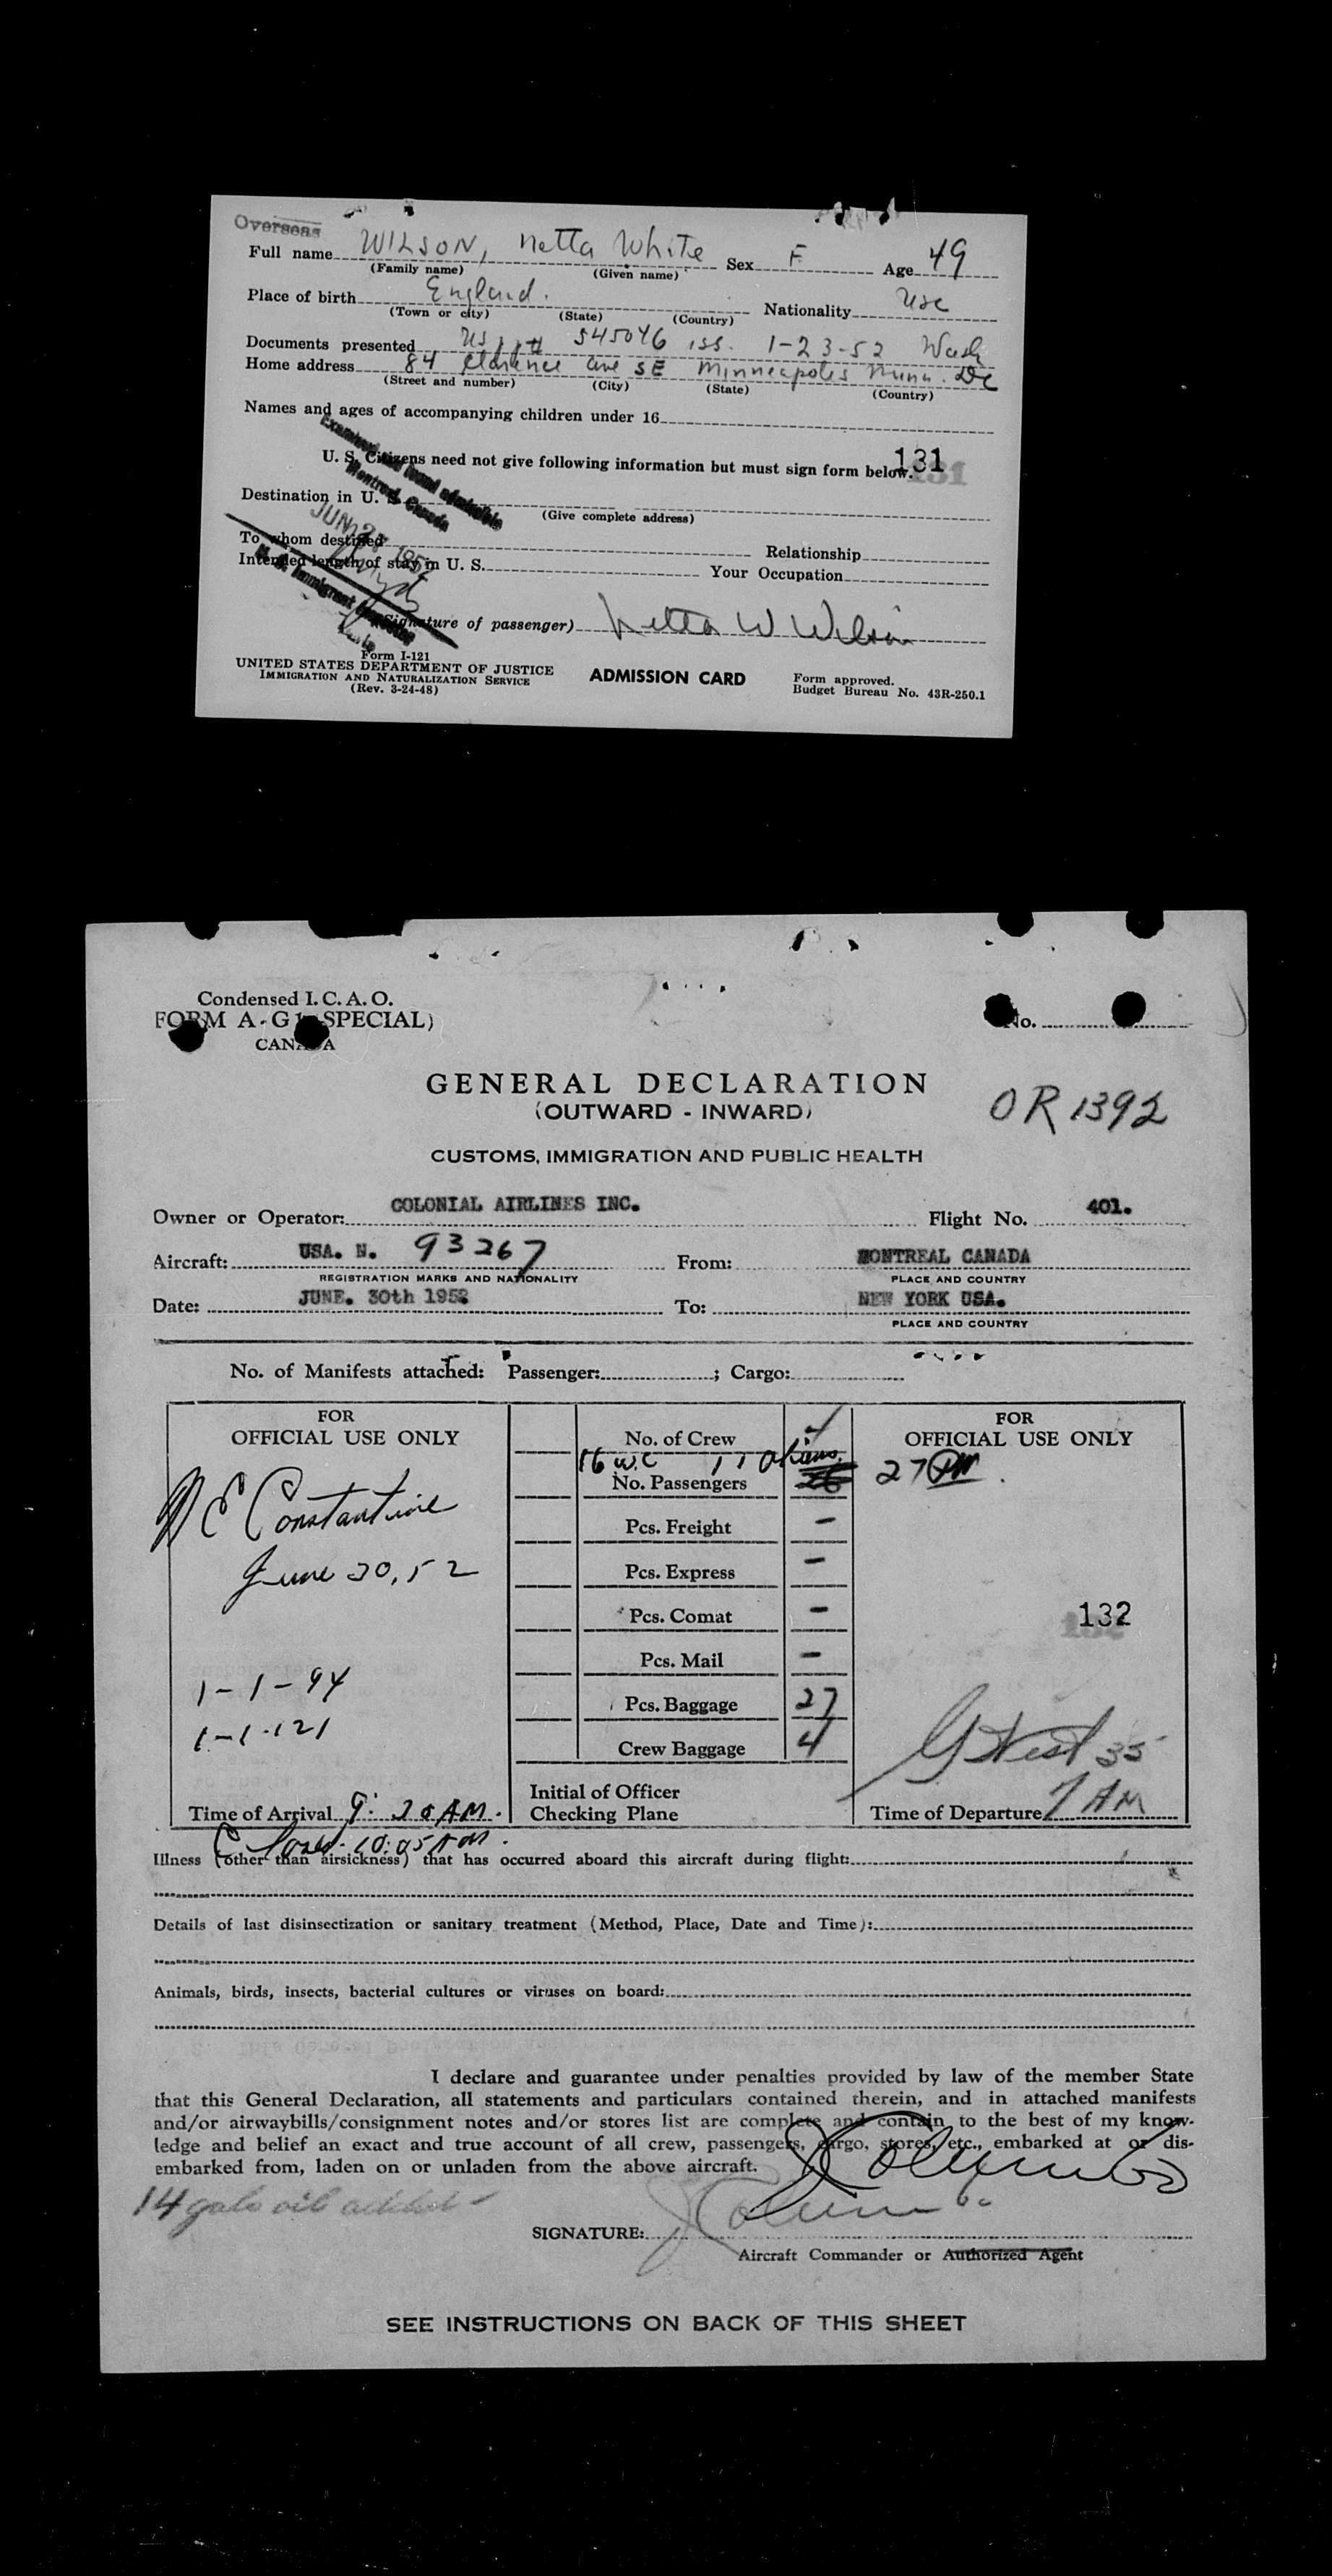 Overseas
Full name WILSON, Netta White Sex F Age 49
(Family name) (Given name)
Place of birth England. Nationality USC
(Town or city) (State) (Country)
Documents presented US ppt# 545046 iss. 1-23-52 Wash
Home address 84 Clarence Ave SE Minneapolis Minn. DC
(Street and number) (City) (State) (Country)
Names and ages of accompanying children under 16
U. S. Citizens need not give following information but must sign form below.
131
Destination in U. S.
(Give complete address)
To whom destined Relationship
Intended length of stay in U. S. Your Occupation
Examined and found admissible
Montreal, Canada
JUN 1952
U.S. Immigrant Inspector
(Signature of passenger) Netta W Wilson
Form I-121
UNITED STATES DEPARTMENT OF JUSTICE
IMMIGRATION AND NATURALIZATION SERVICE
(Rev. 3-24-48)
ADMISSION CARD
Form approved.
Budget Bureau No. 43R-250.1
Condensed I. C. A. O.
FORM A-G 1 SPECIAL)
CANADA
No.
GENERAL DECLARATION
(OUTWARD - INWARD)
OR 1392
CUSTOMS, IMMIGRATION AND PUBLIC HEALTH
Owner or Operator: COLONIAL AIRLINES INC. Flight No. 401.
Aircraft: USA. N. 93267 From: MONTREAL CANADA
REGISTRATION MARKS AND NATIONALITY PLACE AND COUNTRY
Date: JUNE. 30th 1952 To: NEW YORK USA.
PLACE AND COUNTRY
No. of Manifests attached: Passenger: ; Cargo:
FOR
OFFICIAL USE ONLY
N E Constantine
June 30, 52
1-1-94
1-1-121
Time of Arrival 9: 20 AM.
Closed 10:05 AM.
No. of Crew 4
16 u.c 11 aliens
No. Passengers 26
Pcs. Freight -
Pcs. Express -
Pcs. Comat -
Pcs. Mail -
Pcs. Baggage 27
Crew Baggage 4
Initial of Officer
Checking Plane
FOR
OFFICIAL USE ONLY
27
132
G West 35
Time of Departure 7 AM
Illness (other than airsickness) that has occurred aboard this aircraft during flight:
Details of last disinsectization or sanitary treatment (Method, Place, Date and Time):
Animals, birds, insects, bacterial cultures or viruses on board:
I declare and guarantee under penalties provided by law of the member State
that this General Declaration, all statements and particulars contained therein, and in attached manifests
and/or airwaybills/consignment notes and/or stores list are complete and contain to the best of my know-
ledge and belief an exact and true account of all crew, passengers, cargo, stores, etc., embarked at or dis-
embarked from, laden on or unladen from the above aircraft.
14 gals oil added
SIGNATURE:
Aircraft Commander or Authorized Agent
SEE INSTRUCTIONS ON BACK OF THIS SHEET